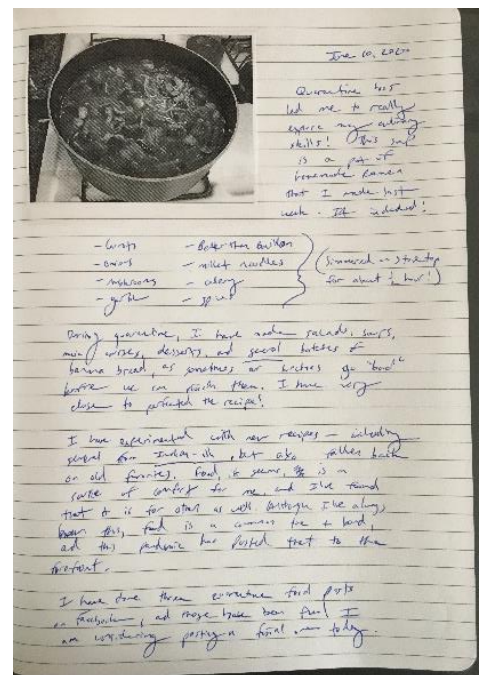 June 10, 2020
Quarantine has
led me to really
explore my culinary
skills! This soup
is a pot of
homemade Ramen
that I made last
week. It included:
- onions
- mushrooms
- garlic
- Better than Bouillon
- millet noodles
- celery
- spices
(Simmered on stovetop
for about ½ hour!)
During quarantine, I have made salads, soups,
main courses, desserts, and several batches of
banana bread, as sometimes our go "bad"
before we can finish them. I have very
close to perfected the recipe!
I have experimented with new recipes - including
several from Indian-ish, but also fallen back
on old favorites. Food, it seems, is a
source of comfort for me, and I've found
that it is for others as well. Although I've always
known this, food is a common tie + bond,
and this pandemic has posted that to the
forefront.
I have done three quarantine food posts
on facebook, and those have been fun! I
am considering posting a final one today.